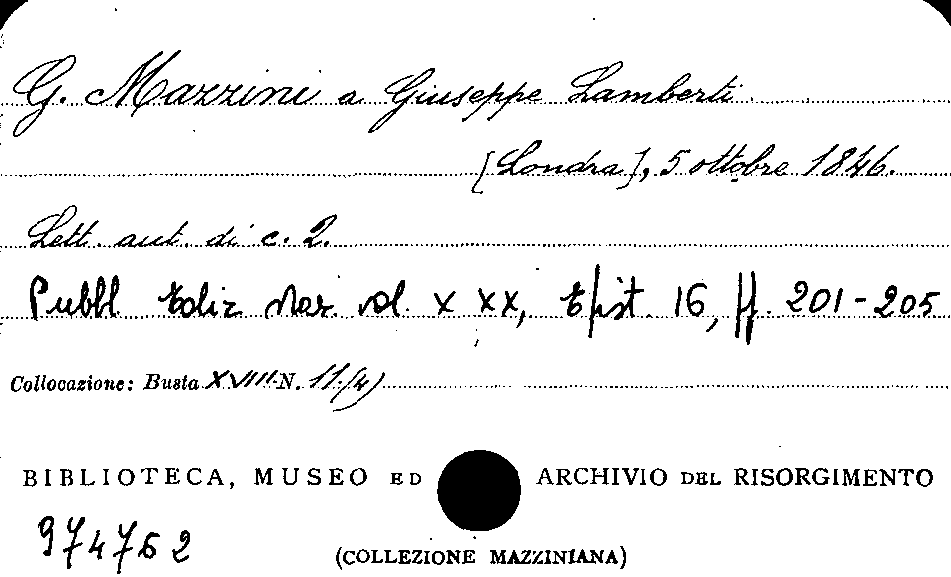 G. Mazzini a Giuseppe Lamberti
[Londra], 5 ottobre 1846.
Lett. aut. di c. 2.
Pubbl Ediz Naz. vol. XXX, Epist. 16, pp. 201-205
Collocazione: Busta XVIII N. 11 (4)
BIBLIOTECA, MUSEO ED ARCHIVIO DEL RISORGIMENTO
974762
(COLLEZIONE MAZZINIANA)